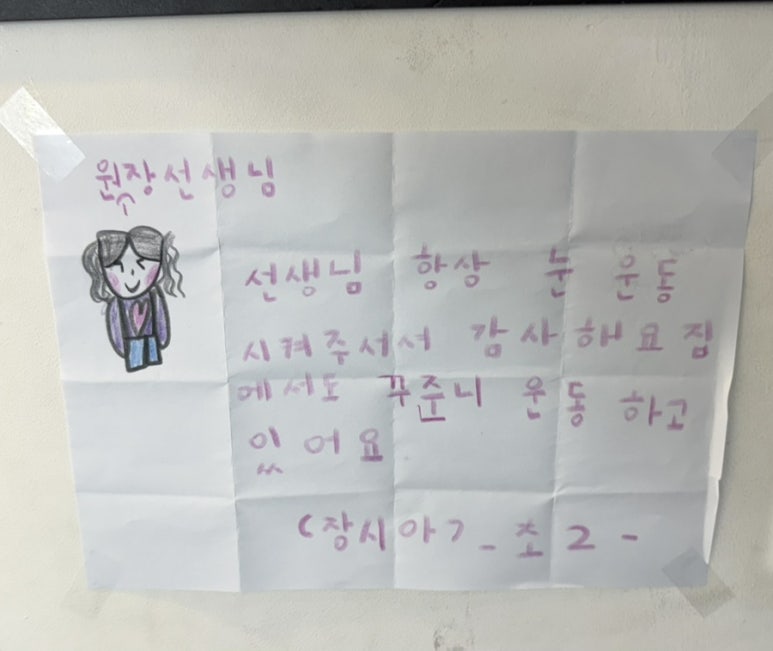 원장선생님
선생님 항상 눈 운동
시켜주셔서 감사해요 집
에서도 꾸준니 운동 하고
있어요
(장시아) - 초2 -